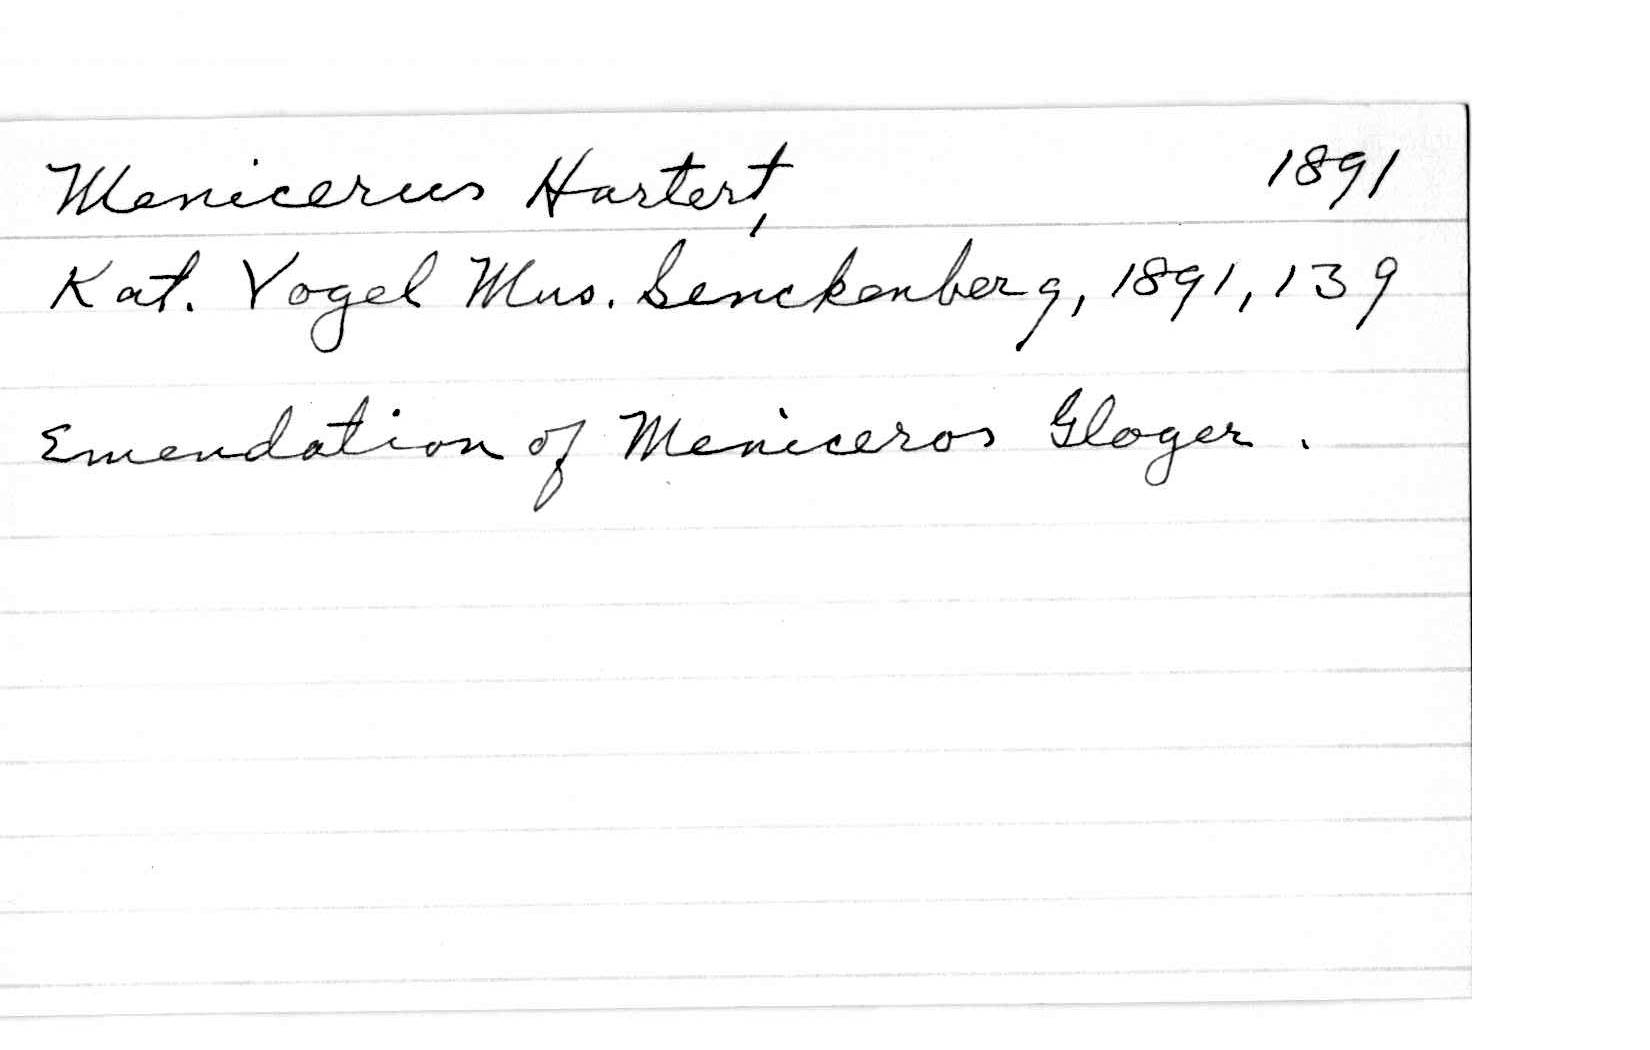 Menicerus Hartert, 1891
Kat. Vogel Mus. Senckenberg, 1891, 139
Emendation of Meniceros Gloger.